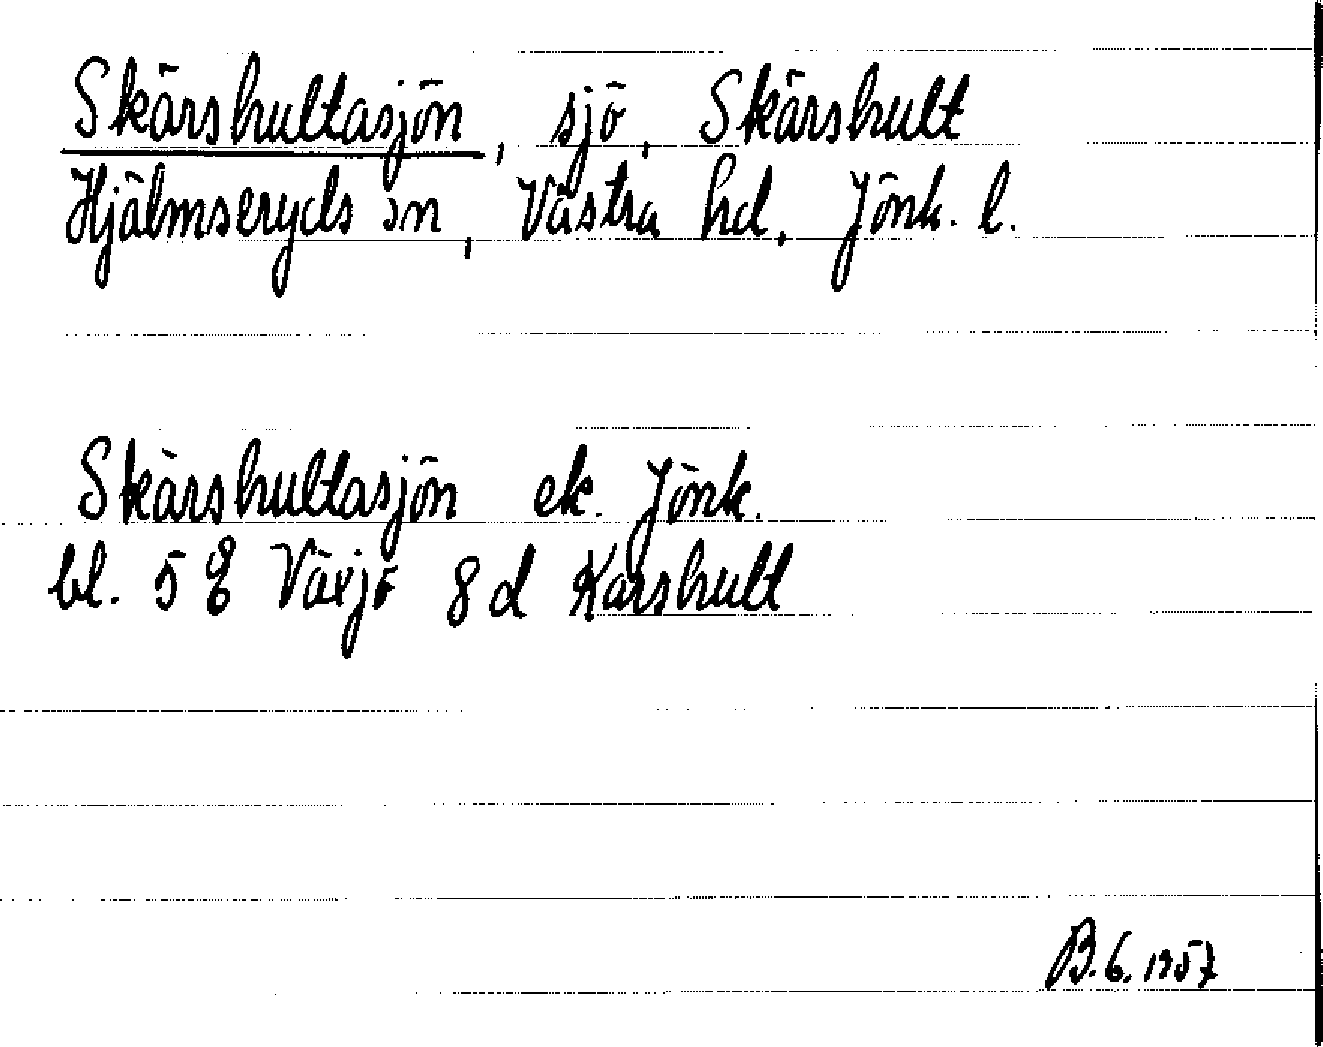 Skärshultasjön, sjö, Skärshult
Hjälmseryds sn, Västra hd, Jönk. l.
Skärshultasjön ek. Jönk.
bl. 5 E Växjö 8 d Karshult
B.G. 1957